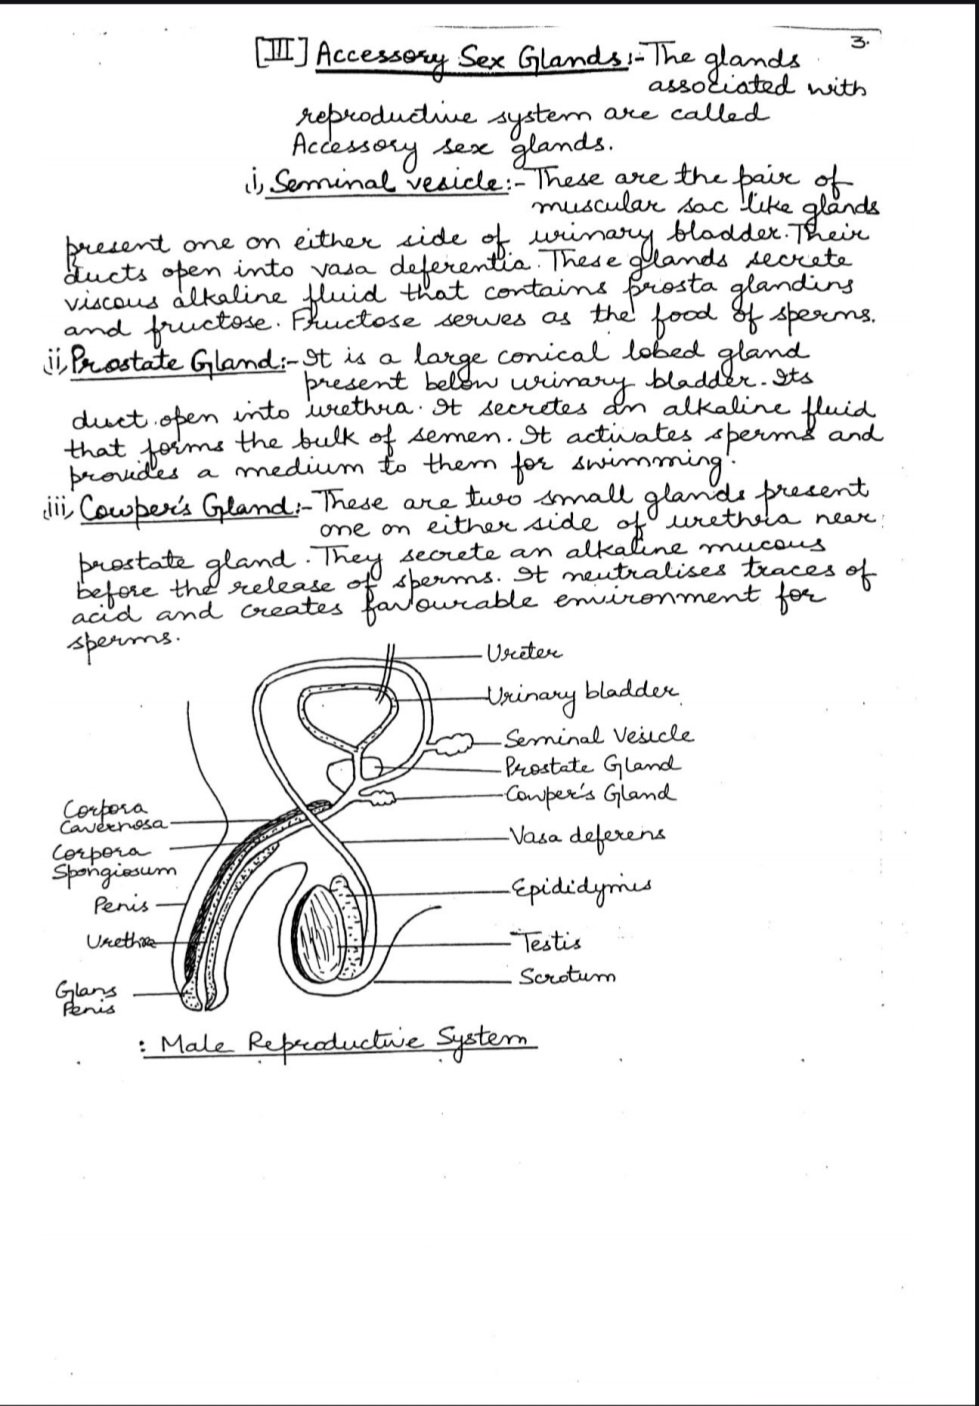 3.
[III] Accessory Sex Glands:- The glands
associated with
reproductive system are called
Accessory sex glands.
i, Seminal vesicle:- These are the pair of
muscular sac like glands
present one on either side of urinary bladder. Their
ducts open into vasa deferentia. These glands secrete
viscous alkaline fluid that contains prosta glandins
and fructose. Fructose serves as the food of sperms.
ii, Prostate Gland:- It is a large conical lobed gland
present below urinary bladder. Its
duct open into urethra. It secretes an alkaline fluid
that forms the bulk of semen. It activates sperms and
provides a medium to them for swimming.
iii, Cowper's Gland:- These are two small glands present
one on either side of urethra near
prostate gland. They secrete an alkaline mucous
before the release of sperms. It neutralises traces of
acid and creates favourable environment for
sperms.
Ureter
Urinary bladder
Seminal Vesicle
Prostate Gland
Cowper's Gland
Corpora
Cavernosa
Vasa deferens
Corpora
Spongiosum
Epididymis
Penis
Urethra
Testis
Scrotum
Glans
Penis
: Male Reproductive System